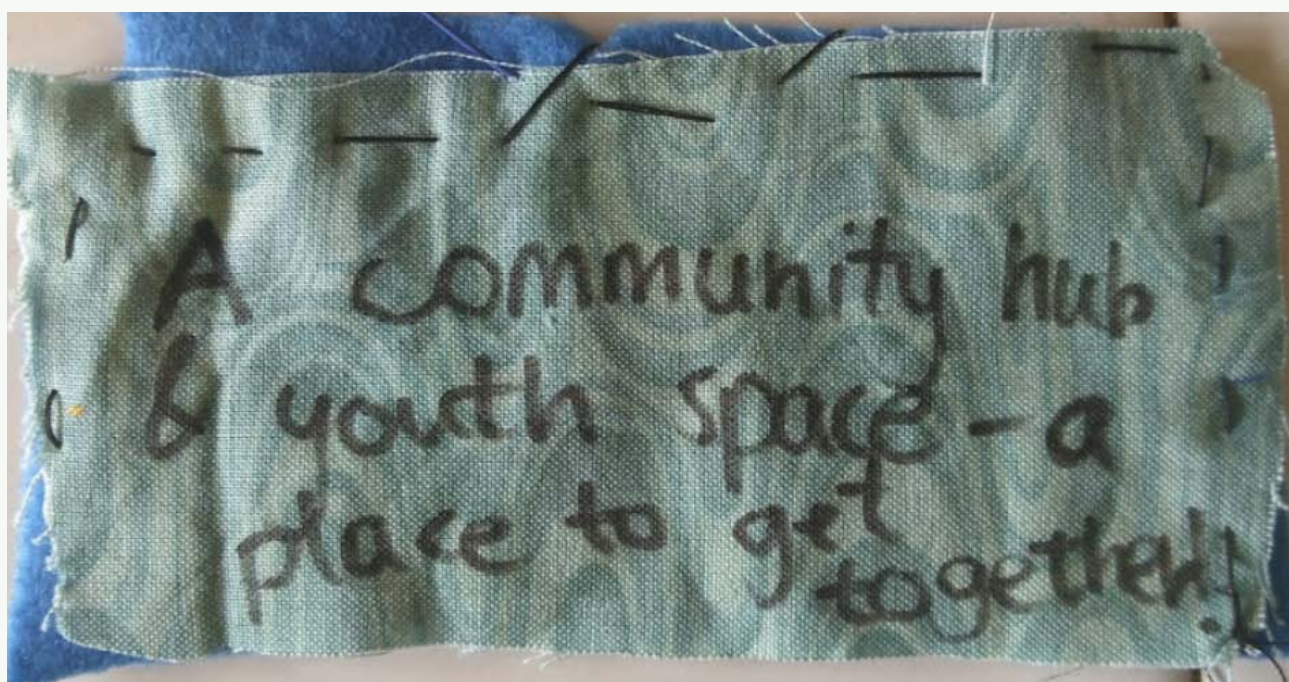 A community hub
& youth space - a
place to get
together!